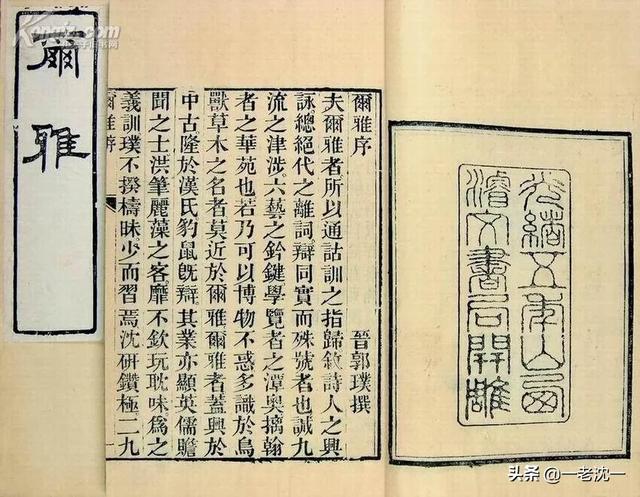 爾雅
光緒五年山西
濬文書局開雕
爾雅序
晉郭璞撰
夫爾雅者所以通詁訓之指歸敘詩人之興
詠總絕代之離詞辯同實而殊號者也誠九
流之津涉六藝之鈐鍵學覽者之潭奧摛翰
者之華苑也若乃可以博物不惑多識於鳥
獸草木之名者莫近於爾雅爾雅者蓋興於
中古隆於漢氏豹鼠旣辯其業亦顯英儒贍
聞之士洪筆麗藻之客靡不欽玩耽味爲之
義訓璞不揆檮昧少而習焉沈研鑽極二九
爾雅序
头条 @一老沈一